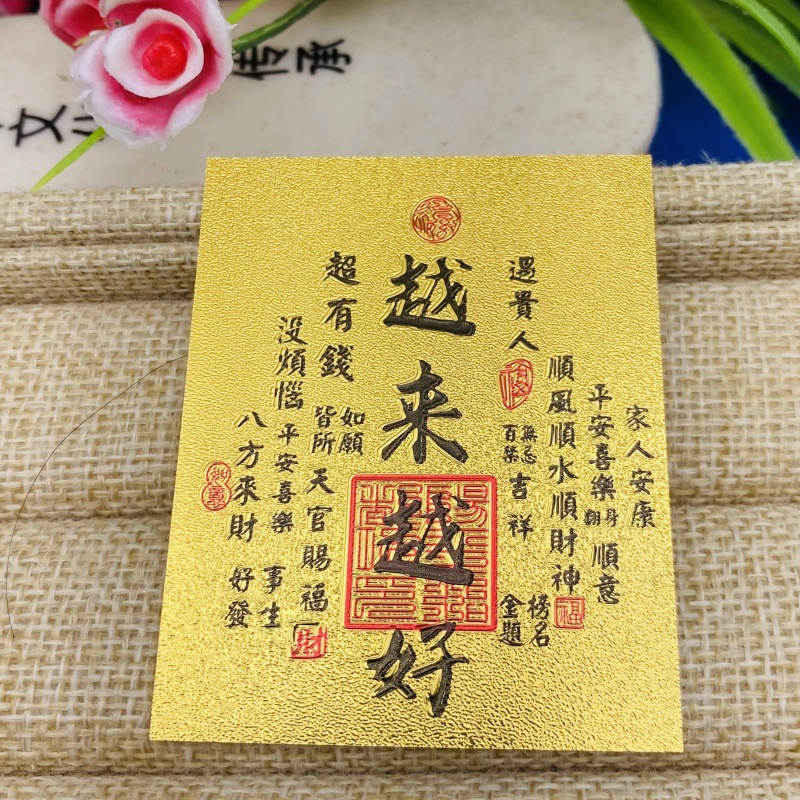 文
传承
越来越好
家人安康
平安喜樂
順意
順風順水順財神
榜名
金題
遇貴人
無忌
百禁
吉祥
超有錢
如願
皆所
天官賜福
没煩惱
平安喜樂
事生
好發
八方來財
財
福